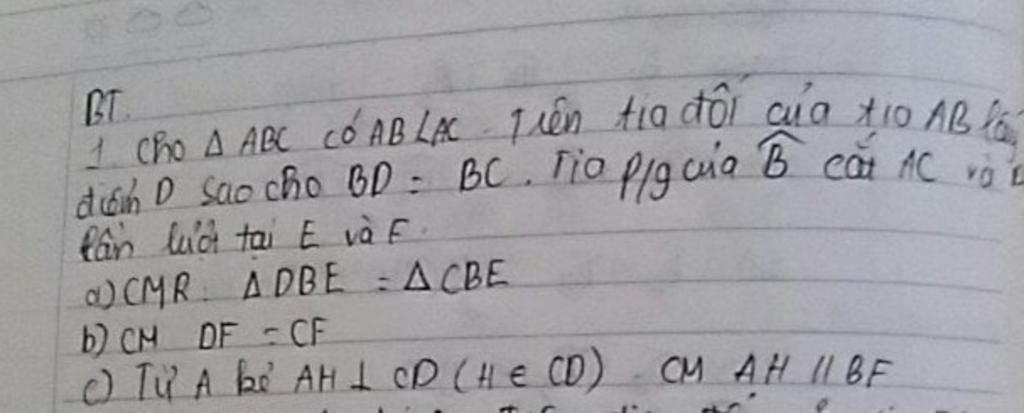 BT.
1 Cho Δ ABC có AB < AC. Trên tia đối của tia AB lấy
điểm D sao cho BD = BC. Tia p/g của B̂ cắt AC và
lần lượt tại E và F.
a) CMR: Δ DBE = Δ CBE
b) CM DF = CF
c) Từ A kẻ AH ⊥ CD (H ∈ CD) CM AH // BF